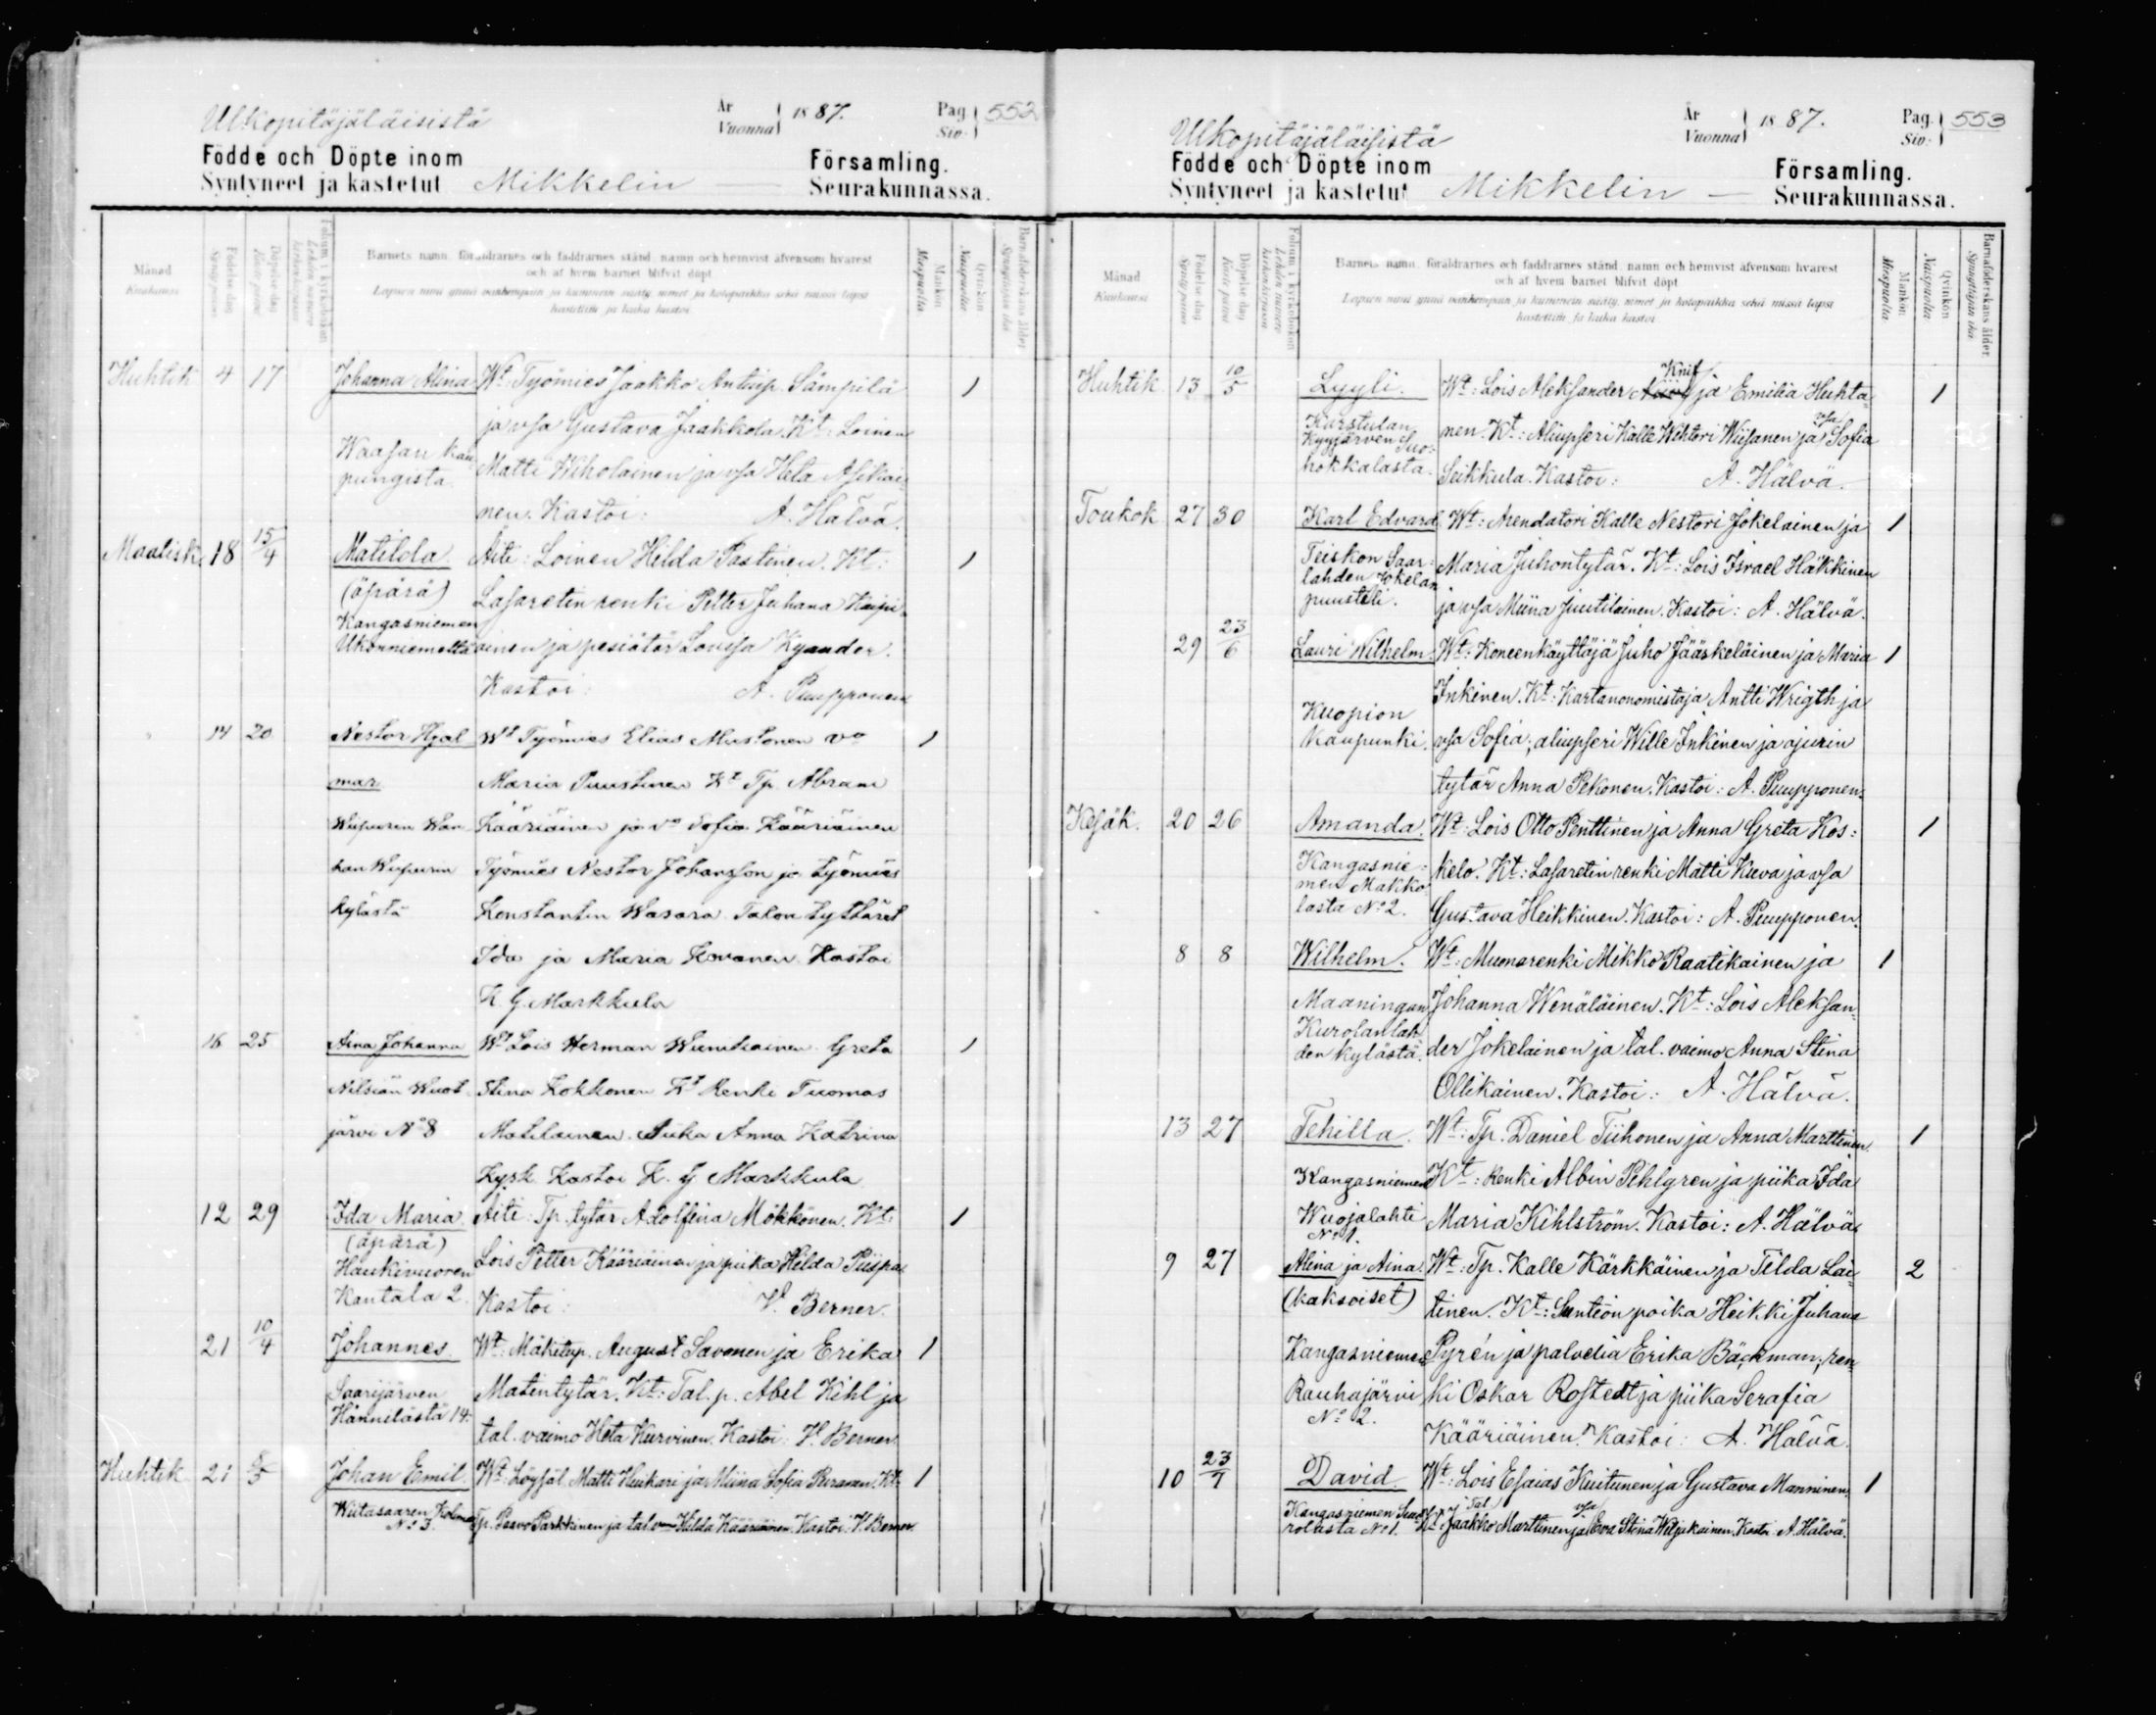 Ulkopitäjäläisistä
År
Vuonna
1887.
Pag.
Siv.
552
Födde och Döpte inom
Syntyneet ja kastetut Mikkelin
Församling.
Seurakunnassa.
Månad
Kuukausi
Födelse dag
Döpelse dag
Folium i kyrkoboken
Barnets namn, föräldrarnes och faddrarnes stånd, namn och hemvist äfvensom hvarest
och af hvem barnet blifvit döpt
Lapsen nimi ynnä vanhempain ja kummein sääty, nimet ja kotopaikka sekä missä lapsi
kastettiin ja kuka kastoi
Mankön
Miespuolta
Qvinkön
Naispuolta
Barnaföderskans ålder
Huhtik 4 17 Johanna Alina Wt: Työmies Jaakko Antinp. Sämpilä 1
ja vsa Gustava Jaakkola. Kt: Loinen
Waasan kau
pungista
Matti Wiholainen ja vsa Heta Asikai
nen. Kastoi: A. Hälvä.
Maalisk. 18 15/4 Matilda. Äiti: Loinen Hilda Pastinen. Kt: 1
(äpärä) Lasaretin renki Petter Juhana Kaipi
Kangasniemen
Ukonniemeltä ainen ja pesiätär Lovisa Kyander.
Kastoi: A. Puupponen
14 20 Nestor Hjal Wt Työmies Elias Mustonen vo 1
mar Maria Puustinen Kt Tp. Abram
Wiipurin Wan Kääriäinen ja vo Sofia Kääriäinen
han Wiipurin Työmies Nestor Johansson ja työmies
kylästä Konstantin Wasara Talon tyttäret
Ida ja Maria Kovanen Kastoi
K. G. Markkula
16 25 Aina Johanna Wt Lois Herman Greta 1
Nilsiän Wuot Stina Kokkonen Kt Renki Tuomas
järvi No 8 Matilainen Piika Anna Katrina
Kysk Kastoi K. G Markkula
12 29 Ida Maria. Äiti: Tp. tytär Adolfina Mökkönen. Kt: 1
(äpärä)
Haukivuoren Lois Petter Kääriäinen ja piika Hilda Piispa
Kantala 2. Kastoi: V. Berner.
21 10/4 Johannes. Wt: Mäkitup. August Savonen ja Erika 1
Saarijärven Matintytär. Kt: Tal. p. Abel Kihl ja
Hännilästä 14. tal. vaimo Heta Kurvinen. Kastoi: V. Berner.
Huhtik 21 Johan Emil. Wt: Löysäl. Matti Huikari ja Miina Sofia Puranen. Kt: 1
Wiitasaaren Kolima
No 3. Tp. Paavo Parkkinen ja tal vmo Hilda Kääriäinen. Kastoi: V. Berner.
Ulkopitäjäläisistä
År
Vuonna
1887.
Pag.
Siv.
553
Födde och Döpte inom
Syntyneet ja kastetut Mikkelin
Församling.
Seurakunnassa.
Månad
Kuukausi
Födelse dag
Döpelse dag
Folium i kyrkoboken
Barnets namn, föräldrarnes och faddrarnes stånd, namn och hemvist äfvensom hvarest
och af hvem barnet blifvit döpt
Lapsen nimi ynnä vanhempain ja kummein sääty, nimet ja kotopaikka sekä missä lapsi
kastettiin ja kuka kastoi
Mankön
Miespuolta
Qvinkön
Naispuolta
Barnaföderskans ålder
Knif
Huhtik 13 10/5 Lyyli. Wt: Lois Aleksander ja Emilia Huhta 1
Karstulan
Kyyjärven Suo- nen. Kt: Aliupseri Kalle Wihtori Wiisanen ja vsa Sofia
hokkalasta. Seikkula. Kastoi: A. Hälvä.
Toukok 27 30 Karl Edvard Wt: Arendatori Kalle Nestori Jokelainen ja 1
Teiskon Saar-
lahden Jokelan Maria Juhontytär. Kt: Lois Israel Häkkinen
puusteli. ja vsa Miina Juutilainen. Kastoi: A. Hälvä.
29 23/6 Lauri Wilhelm. Wt: Koneenkäyttäjä Juho Jääskeläinen ja Maria 1
Inkinen. Kt: Kartanonomistaja Antti Wrigth ja
Kuopion
Kaupunki. vsa Sofia; aliupseri Wille Inkinen ja ajurin
tytär Anna Pekonen. Kastoi: A. Puupponen.
Kesäk. 20 26 Amanda. Wt: Lois Otto Penttinen ja Anna Greta Kos= 1
Kangasnie=
men Makko kelo. Kt: Lasaretin renki Matti Kuva ja vsa
lasta No 2. Gustava Heikkinen. Kastoi: A. Puupponen.
8 8 Wilhelm. Wt: Muonarenki Mikko Raatikainen ja 1
Maaningan Johanna Wenäläinen. Kt: Lois Aleksan
Kurolanlah
den kylästä. der Jokelainen ja tal. vaimo Anna Stina
Ollikainen. Kastoi: A. Hälvä.
13 27 Tehilla. Wt: Tp. Daniel Tiihonen ja Anna Marttinen. 1
Kangasniemen Kt: Renki Albin Pihlgren ja piika Ida
Wuojalahti Maria Kihlström. Kastoi: A. Hälvä
No 1.
9 27 Alina ja Aina. Wt: Tp. Kalle Kärkkäinen ja Tilda Lai 2
(kaksoiset) tinen. Kt: Suntion poika Heikki Juhana
Kangasniemen Pyrén ja palvelia Erika Bäckman, ren
Rauhajärvi ki Oskar Rostedt ja piika Serafia
No 2.
Kääriäinen. Kastoi: A. Hälvä.
10 23/7 David. Wt: Lois Esaias Kuitunen ja Gustava Manninen. 1
Kangasniemen Kt: Tal. Jaakko Marttinen ja vsa Eva Stina Wiljakainen. Kastoi A. Hälvä.
rolasta No 1.